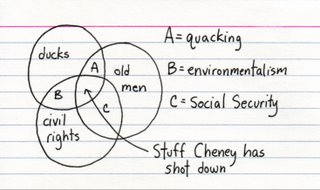 ducks
A
old
men
B
C
civil
rights
A=quacking
B=environmentalism
C=Social Security
Stuff Cheney has
shot down